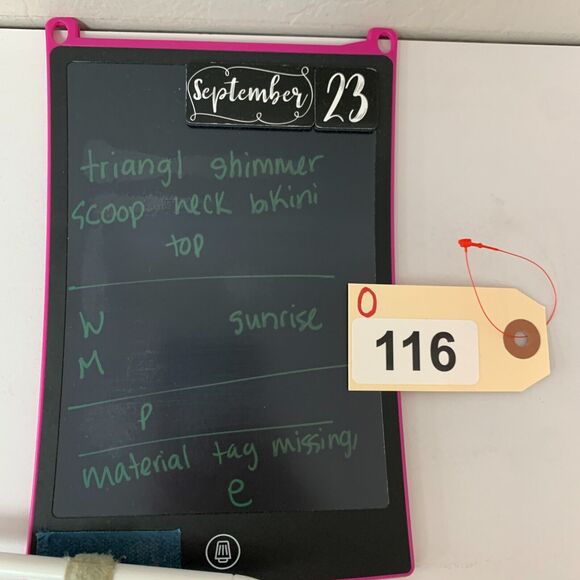 September 23
triangl shimmer
scoop neck bikini
top
W sunrise
M
P
material tag missing,
e
O
116